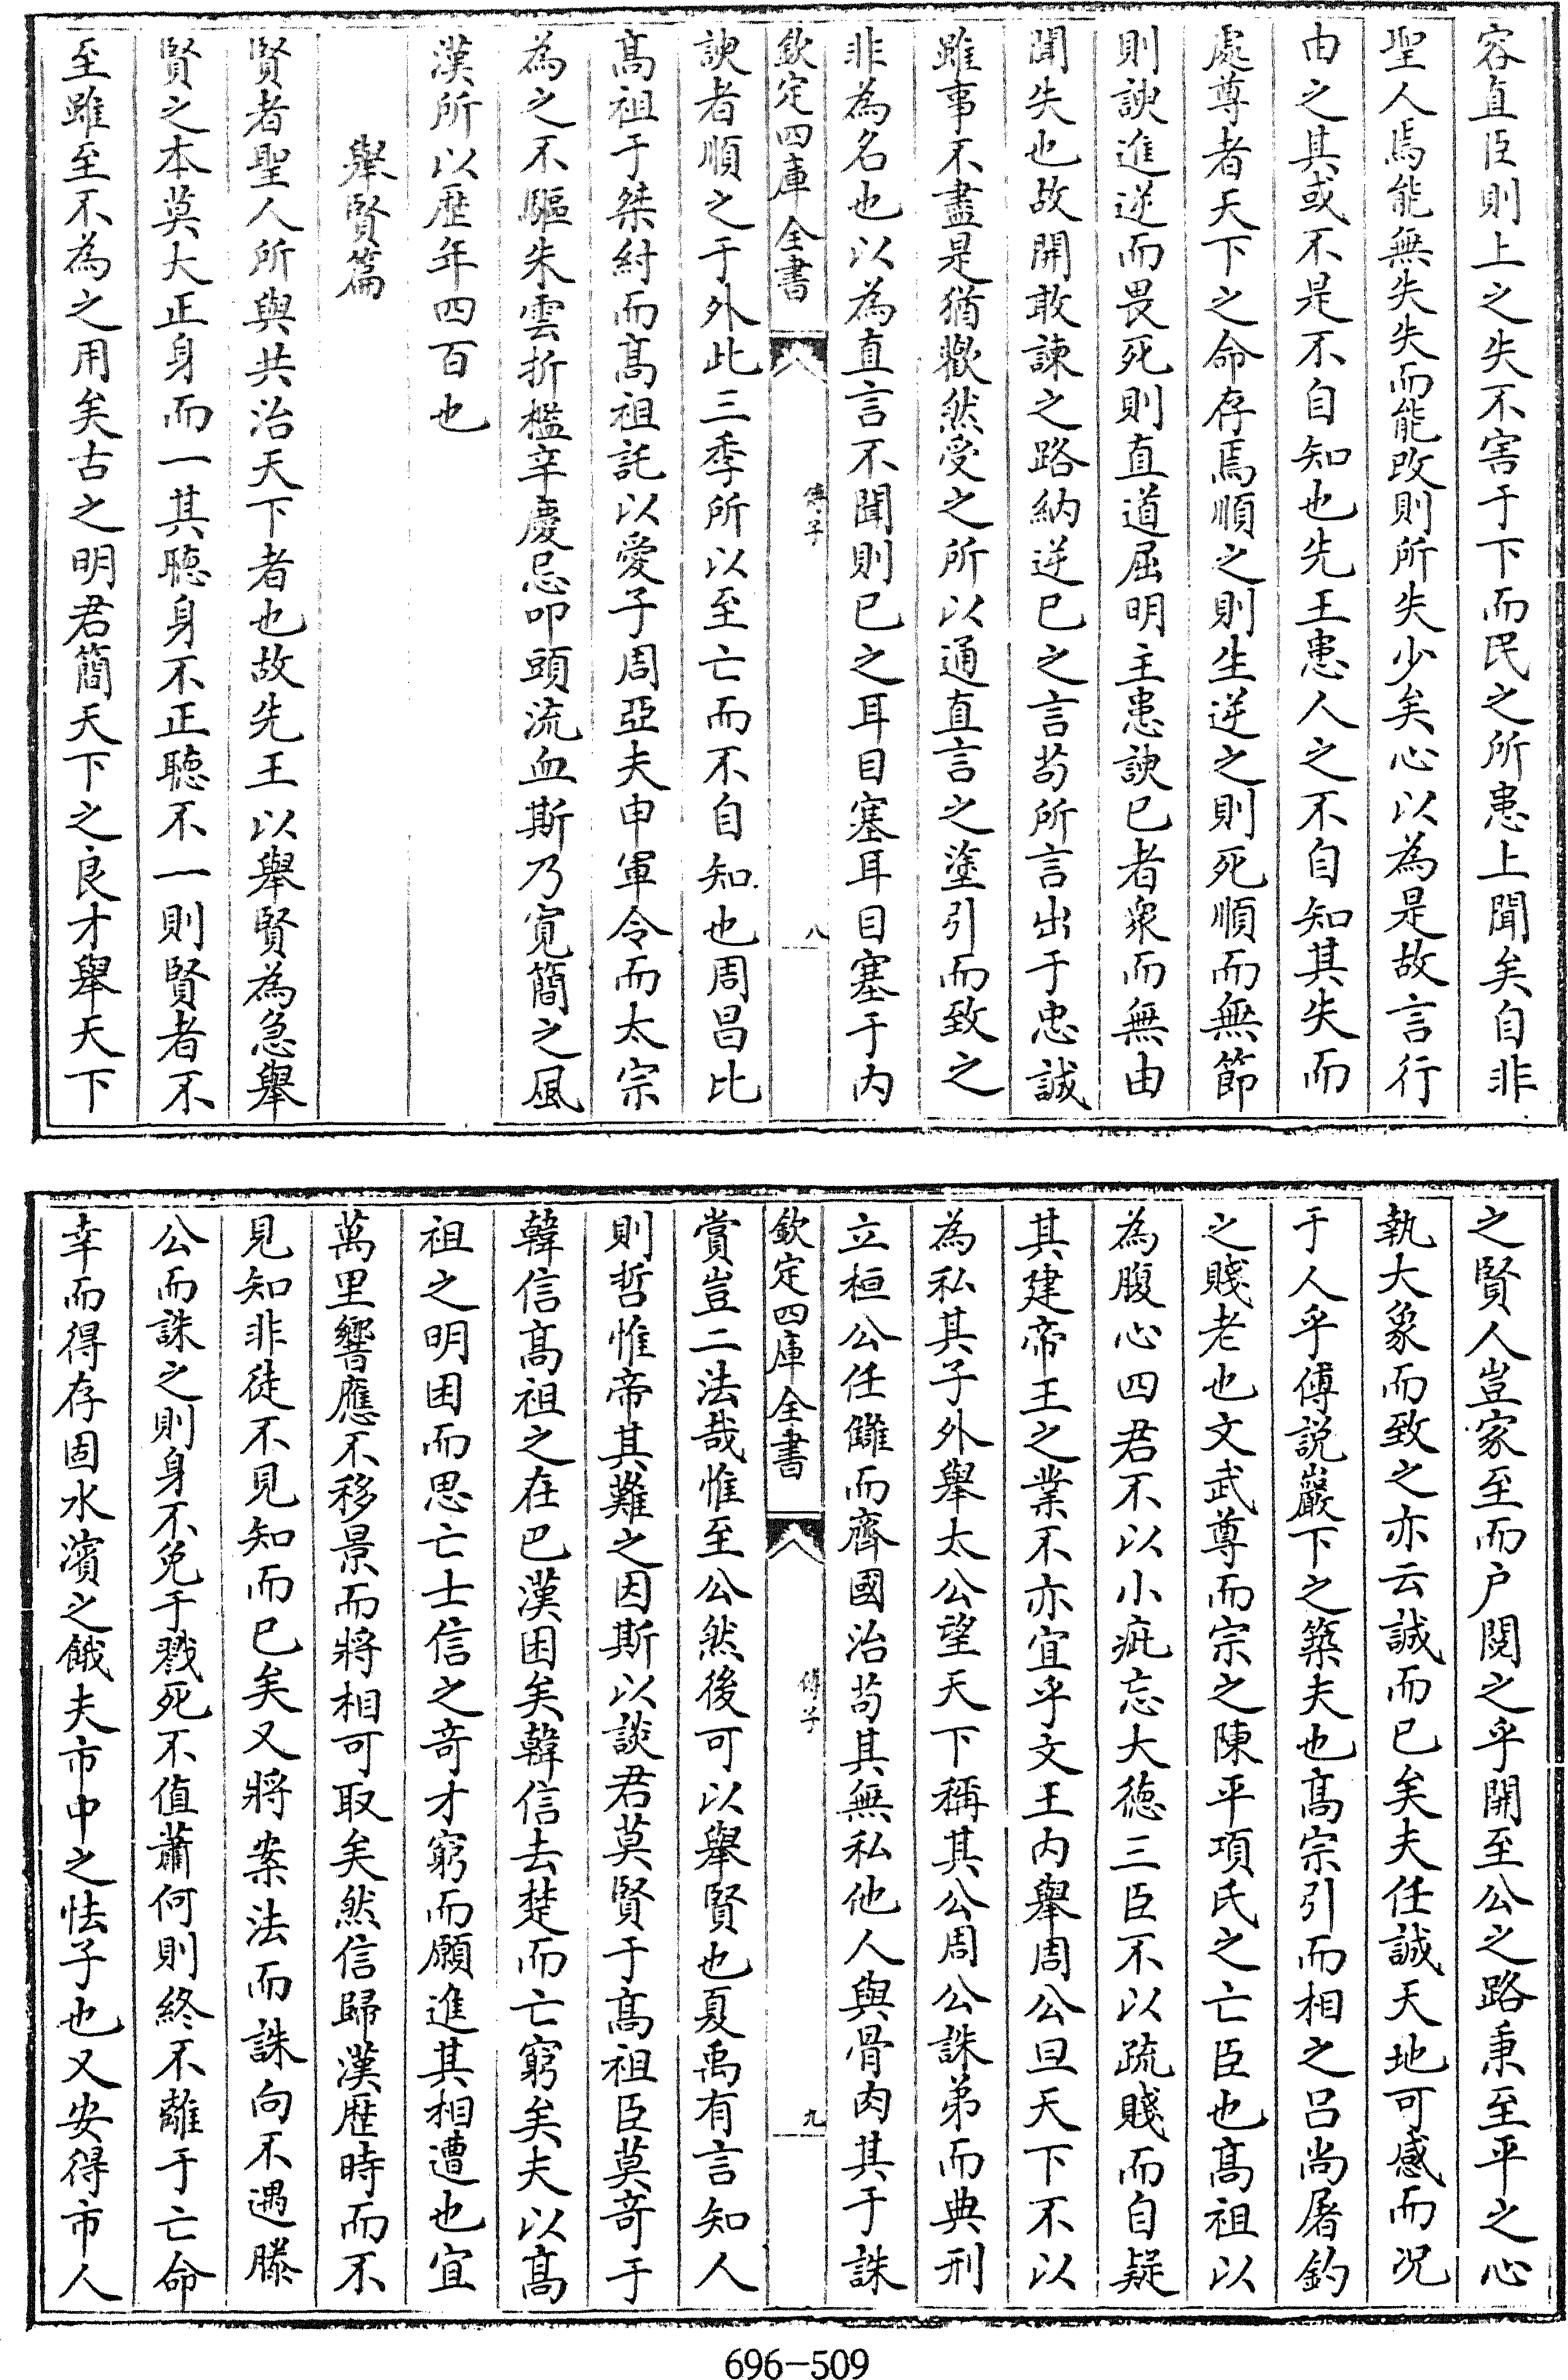 容直臣則上之失不害于下而民之所患上聞矣自非
聖人焉能無失失而能改則所失少矣心以為是故言行
由之其或不是不自知也先王患人之不自知其失而
處尊者天下之命存焉順之則生逆之則死順而無節
則諛進逆而畏死則直道屈明主患諛己者衆而無由
聞失也故開敢諫之路納逆己之言苟所言出于忠誠
雖事不盡是猶歡然受之所以通直言之塗引而致之
非為名也以為直言不聞則己之耳目塞耳目塞于内
欽定四庫全書
傅子
八
諛者順之于外此三季所以至亡而不自知也周昌比
髙祖于桀紂而髙祖託以愛子周亞夫申軍令而太宗
為之不驅朱雲折檻辛慶忌叩頭流血斯乃寛簡之風
漢所以歴年四百也
舉賢篇
賢者聖人所與共治天下者也故先王以舉賢為急舉
賢之本莫大正身而一其聽身不正聽不一則賢者不
至雖至不為之用矣古之明君簡天下之良才舉天下
之賢人豈家至而户閲之乎開至公之路秉至平之心
執大象而致之亦云誠而已矣夫任誠天地可感而况
于人乎傅説巖下之築夫也髙宗引而相之吕尚屠釣
之賤老也文武尊而宗之陳平項氏之亡臣也髙祖以
為腹心四君不以小疵忘大徳三臣不以疏賤而自疑
其建帝王之業不亦宜乎文王内舉周公旦天下不以
為私其子外舉太公望天下稱其公周公誅弟而典刑
立桓公任讎而齊國治苟其無私他人與骨肉其于誅
欽定四庫全書
傅子
九
賞豈二法哉惟至公然後可以舉賢也夏禹有言知人
則哲惟帝其難之因斯以談君莫賢于髙祖臣莫奇于
韓信髙祖之在巴漢困矣韓信去楚而亡窮矣夫以髙
祖之明困而思亡士信之奇才窮而願進其相遭也宜
萬里響應不移景而將相可取矣然信歸漢歴時而不
見知非徒不見知而已矣又將案法而誅向不遇滕
公而誅之則身不免于戮死不值蕭何則終不離于亡命
幸而得存固水濱之餓夫市中之怯子也又安得市人
696-509